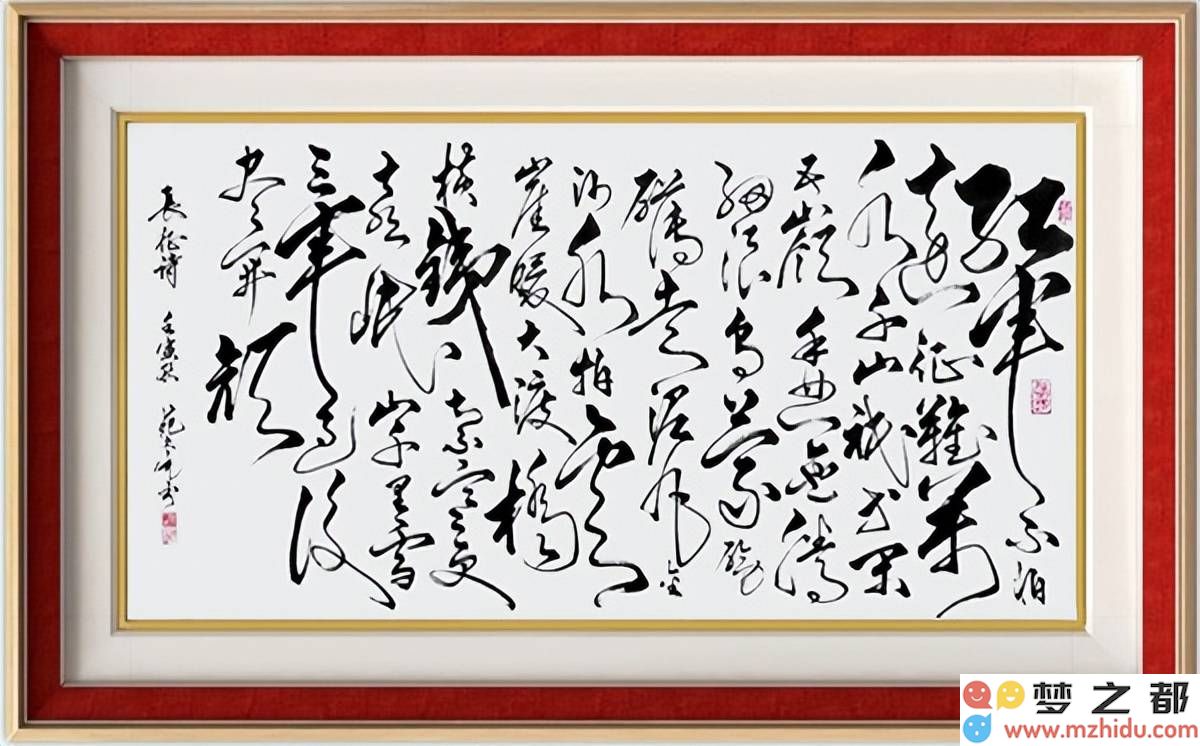 红军不怕
远征難萬
水千山祇等闲
五嶺逶迤腾
细浪乌蒙磅
礴走泥丸金
沙水拍云
崖暖大渡橋
横鐵索寒更
喜岷山千里雪
三军过后
尽开颜
長征诗 壬寅秋 范
梦之都
www.mzhidu.com